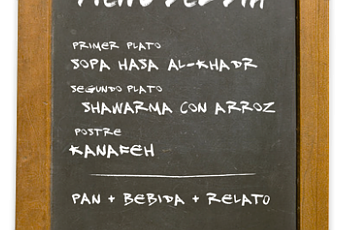 MENÚ DEL DÍA
PRIMER PLATO
SOPA HASA AL-KHADR
SEGUNDO PLATO
SHAWARMA CON ARROZ
POSTRE
KANAFEH
PAN + BEBIDA + RELATO